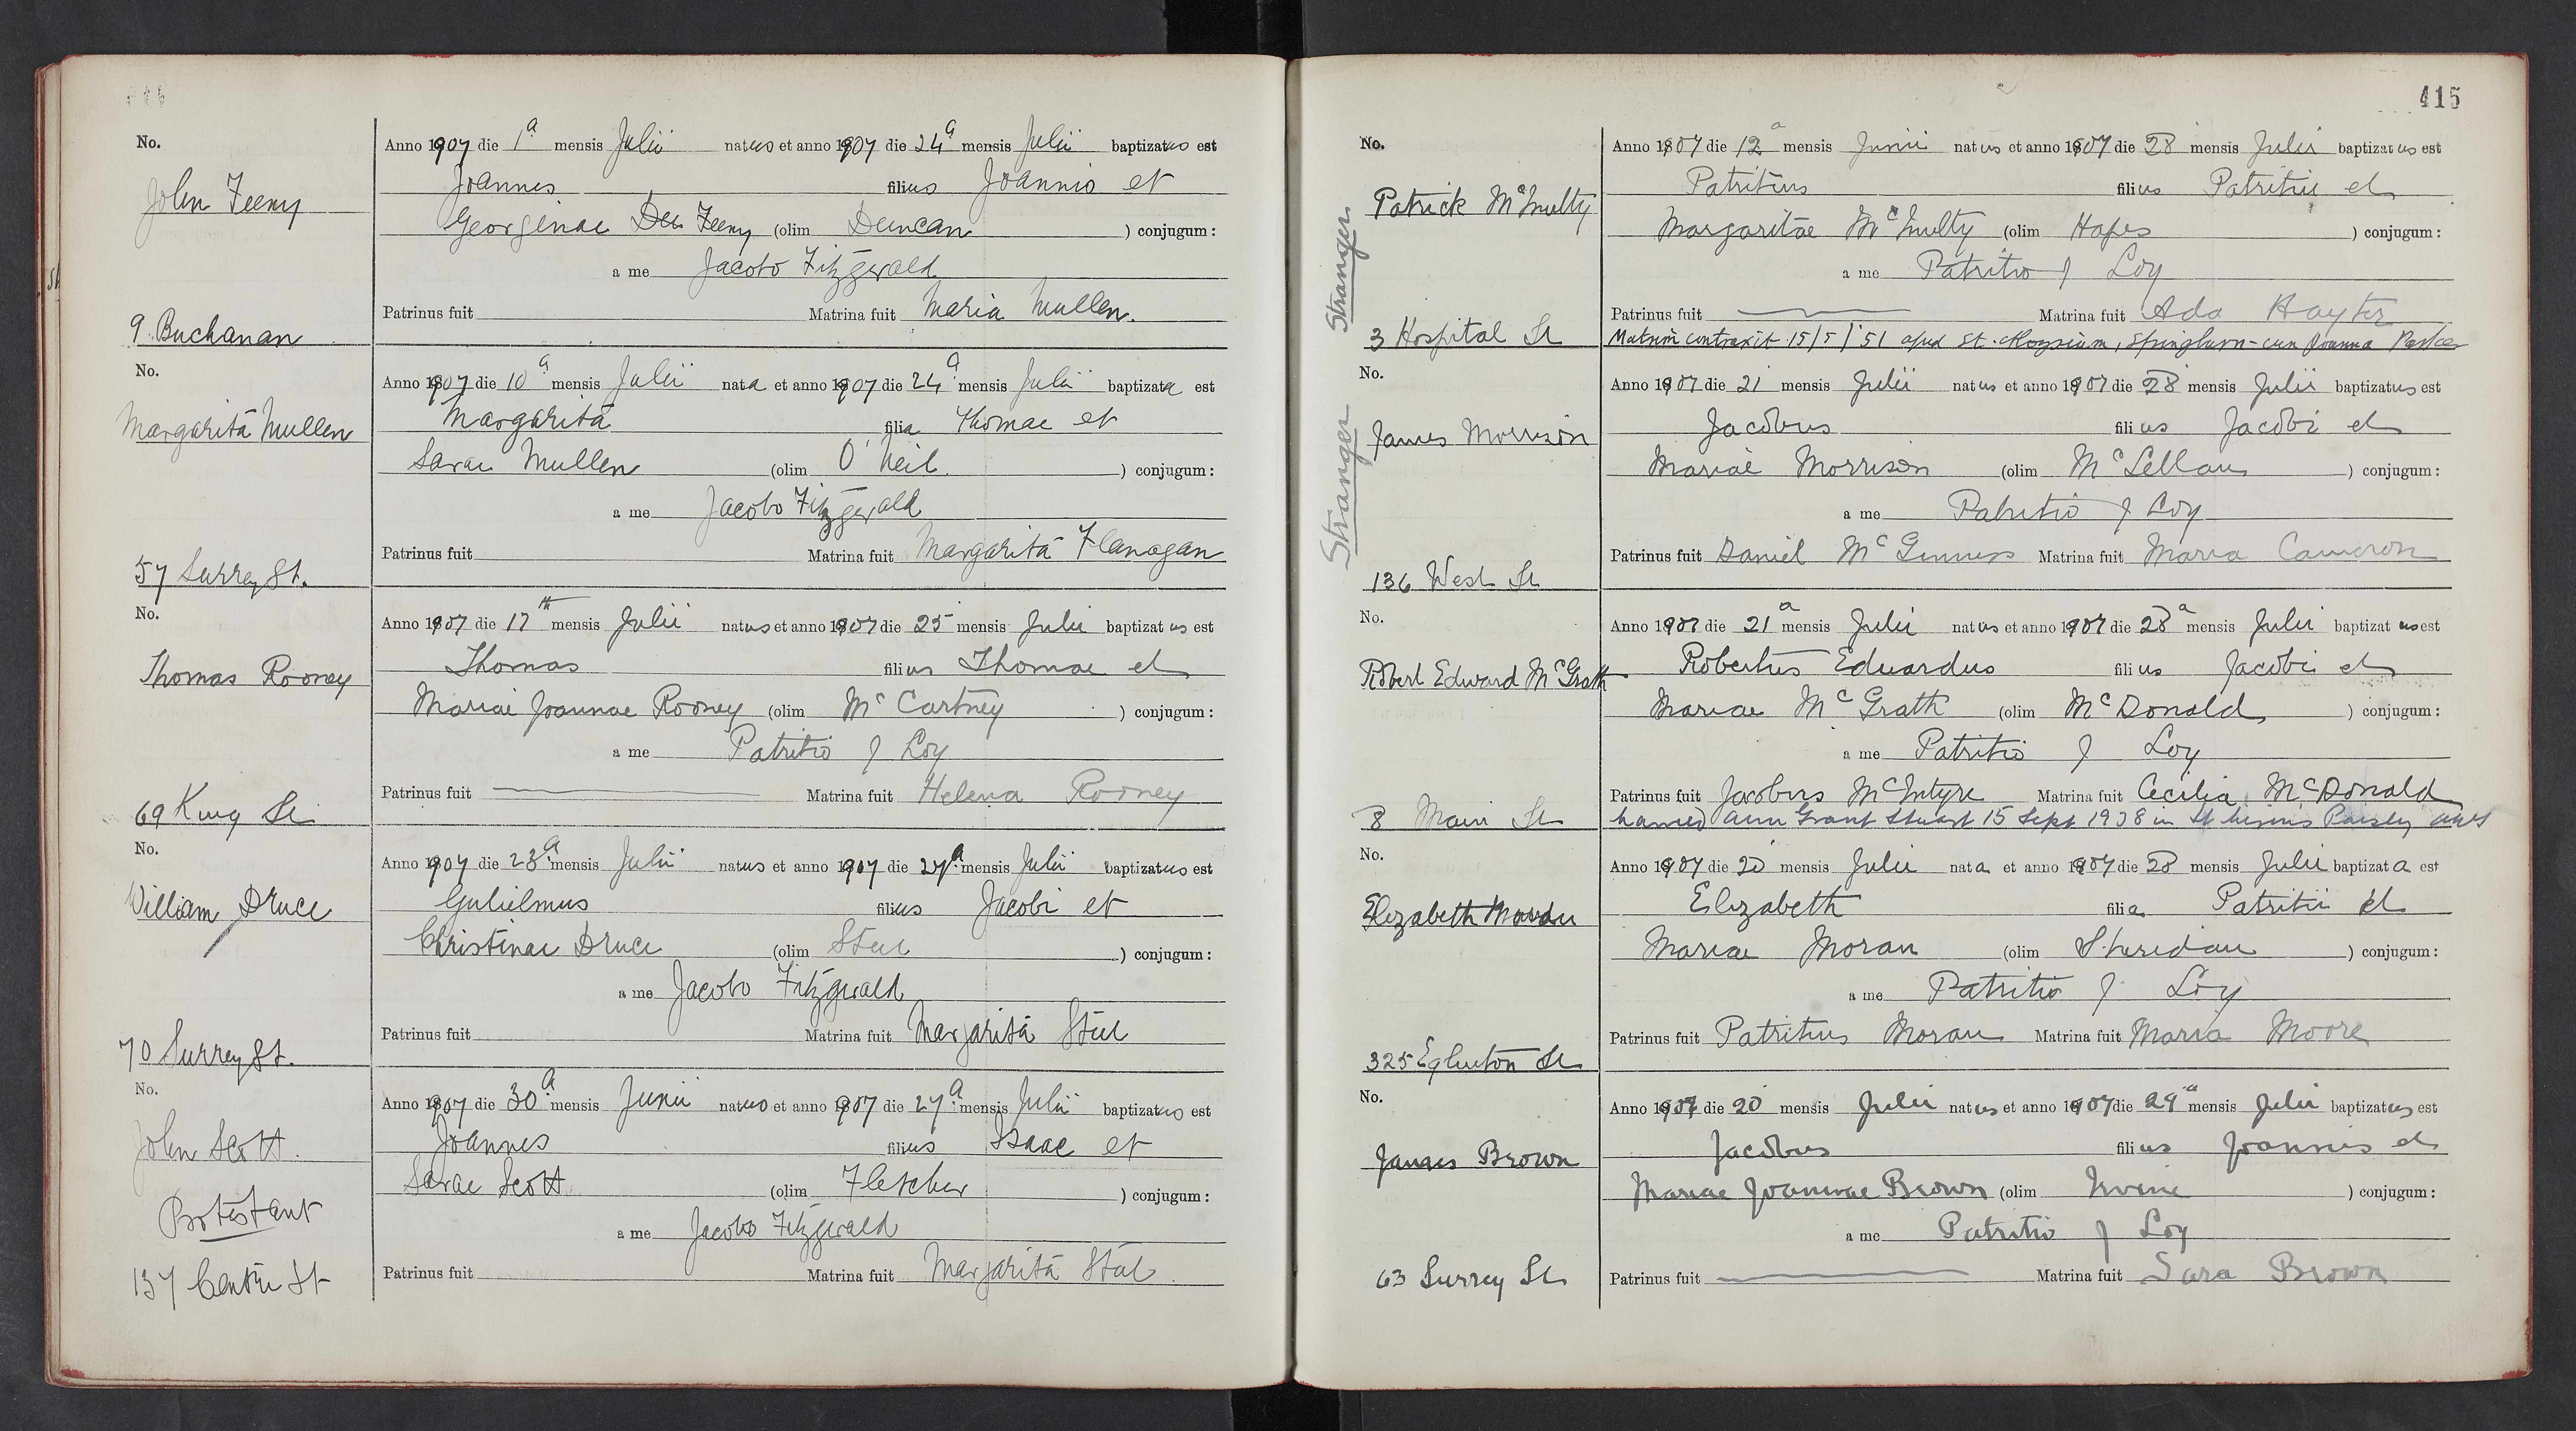 No.
John Feeny
9. Buchanan
Anno 1907 die 1a mensis Julii natus et anno 1907 die 24a mensis Julii baptizatus est
Joannes filius Joannis et
Georginae Feeny (olim Duncan ) conjugum:
a me Jacobo Fitzgerald
Patrinus fuit Matrina fuit Maria Mullen.
No.
Margarita Mullen
57 Surrey St.
Anno 1907 die 10a mensis Julii nata et anno 1907 die 24a mensis Julii baptizata est
Margarita filia Thomae et
Sarae Mullen (olim O'Neil ) conjugum:
a me Jacobo Fitzgerald
Patrinus fuit Matrina fuit Margarita Flanagan
No.
Thomas Rooney
69 King St
Anno 1907 die 17th mensis Julii natus et anno 1907 die 25 mensis Julii baptizatus est
Thomas filius Thomae et
Mariae Joannae Rooney (olim McCartney ) conjugum:
a me Patritio J Loy
Patrinus fuit Matrina fuit Helena Rooney
No.
William Druce
70 Surrey St.
Anno 1907 die 23a mensis Julii natus et anno 1907 die 27a mensis Julii baptizatus est
Gulielmus filius Jacobi et
Christinae Druce (olim Steel ) conjugum:
a me Jacobo Fitzgerald
Patrinus fuit Matrina fuit Margarita Steel
No.
John Scott.
Protestant
137 Centre St
Anno 1907 die 30a mensis Junii natus et anno 1907 die 27a mensis Julii baptizatus est
Joannes filius Isaac et
Sarae Scott (olim Fletcher ) conjugum:
a me Jacobo Fitzgerald
Patrinus fuit Matrina fuit Margarita Steel
415
No.
Patrick McNulty
Stranger
3 Hospital St
Anno 1907 die 12a mensis Junii natus et anno 1907 die 28 mensis Julii baptizatus est
Patritius filius Patritii et
Margaritae McNulty (olim Hopes ) conjugum:
a me Patritio J Loy
Patrinus fuit Matrina fuit Ada Hayter
Matrim contraxit 15/5/'51 apud St. Aloysium, Springburn - cum Joanna
No.
James Morrison
Stranger
136 West St
Anno 1907 die 21 mensis Julii natus et anno 1907 die 28 mensis Julii baptizatus est
Jacobus filius Jacobi et
Mariae Morrison (olim McLellan ) conjugum:
a me Patritio J Loy
Patrinus fuit Daniel McGinness Matrina fuit Maria Cameron
No.
Robert Edward McGrath
8 Main St
Anno 1907 die 21a mensis Julii natus et anno 1907 die 28a mensis Julii baptizatus est
Robertus Eduardus filius Jacobi et
Mariae McGrath (olim McDonald ) conjugum:
a me Patritio J Loy
Patrinus fuit Jacobus McIntyre Matrina fuit Cecilia McDonald
married Ann Grant Stuart 15 Sept 1938 in St Mirins Paisley
No.
Elizabeth Moran
325 Eglinton St
Anno 1907 die 20 mensis Julii nata et anno 1907 die 28 mensis Julii baptizata est
Elizabeth filia Patritii et
Mariae Moran (olim Sheridan ) conjugum:
a me Patritio J Loy
Patrinus fuit Patritius Moran Matrina fuit Maria Moore
No.
James Brown
63 Surrey St
Anno 1907 die 20 mensis Julii natus et anno 1907 die 29a mensis Julii baptizatus est
Jacobus filius Joannis et
Mariae Joannae Brown (olim Irvine ) conjugum:
a me Patritio J Loy
Patrinus fuit Matrina fuit Sara Brown